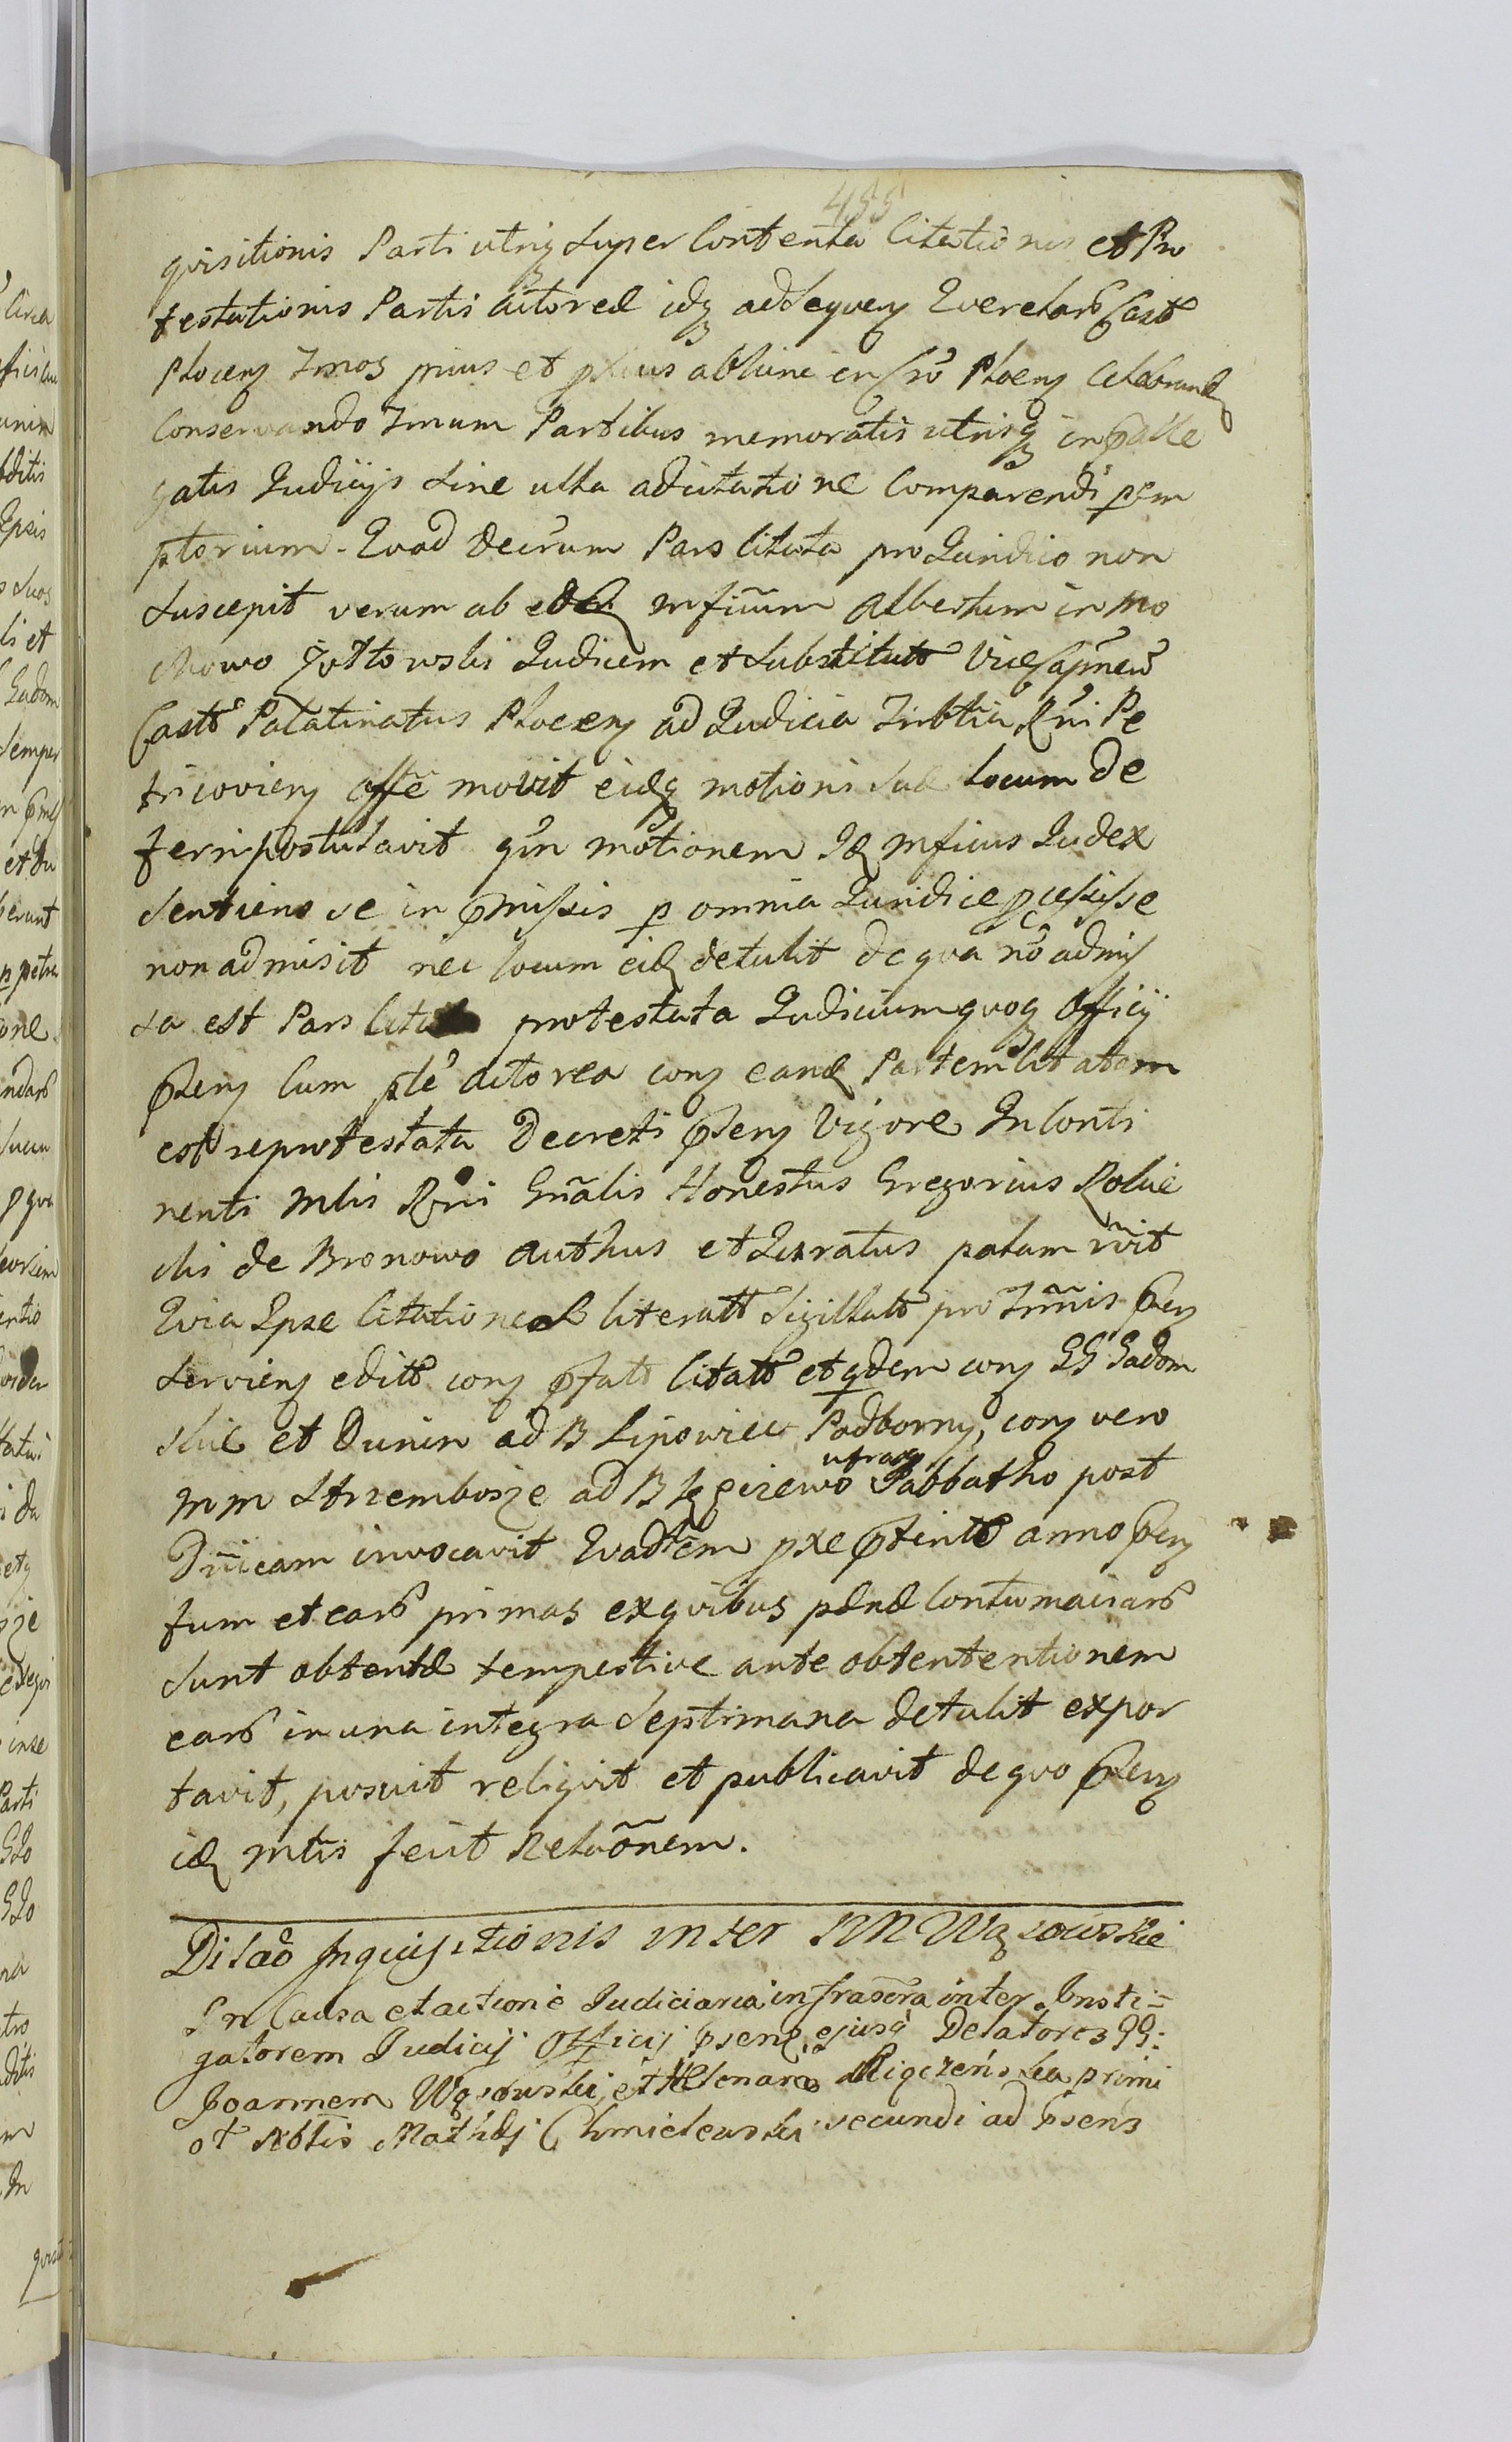 455
quisitionis Parti utriq super Contenta Citationis et Pro
testationis Partis Actoreæ idq ad sequen Querelarū Castr
Plocen Tmos prius et pxius abhinc in Cro Plocen Celebrand
Conservando Tmum Partibus memoratis utrisq in palle
gatis Judicijs sine ulla adcitatione Comparendi pem
ptorium. Quod Decrum Pars Citata pro Juridico non
suscepit verum ab eod mficum Albertum in Mo
chowo Jottowski Judicem et substitutt Vice Capneū
Castr Palatinatus Plocen ad Judicia Tribtia Rni Pe
tricovien offe movit eidq motioni suæ locum de
ferri postulavit qm motionem Id mficus Judex
sentiens se in pmissis p omnia Juridice pcessisse
non admisit nec locum eid detulit de qua nō admis
sa est Pars Citata protestata Judicium quoq Officij
psen cum pte Actorea con eand Partem Citatam
est reprotestata Decreti psen Vigore In Conti
nenti Mlis Rni Gnalis Honestus Gregorius Rokic
ki de Bronowo Authus et Juratus palam rvit
Quia Ipse Citationes literatt Sigillatt pro Tmnis psen
servien editt con pfatt Citatt et qdem con GG Sadom
skie et Dunin ad B Lipowiec Podborny, con vero
MM Strzembosze ad B Zgierewo utraq Sabbatho post
Dnicam invocavit Quadtem pxe pterite anno psen
fum et earū primas ex quibus pænæ Contumaciarū
sunt obtentæ tempestive ante obtententionem
earū in una integra Septimana detulit expor
tavit, posuit reliquit et publicavit de quo psen
id mtis fecit Relaōnem.
Dilaō Inquisitionis inter NN Wąsowskie
In Causa et actione Judiciaria infrascra inter Insti=
gatorem Judicij Officij psen, ejusq Delatores GG:
Joannem Wąsowski et Helenam Rigczeńska primi
et Nobtis Mathæj Chmielewski secundi ad psens